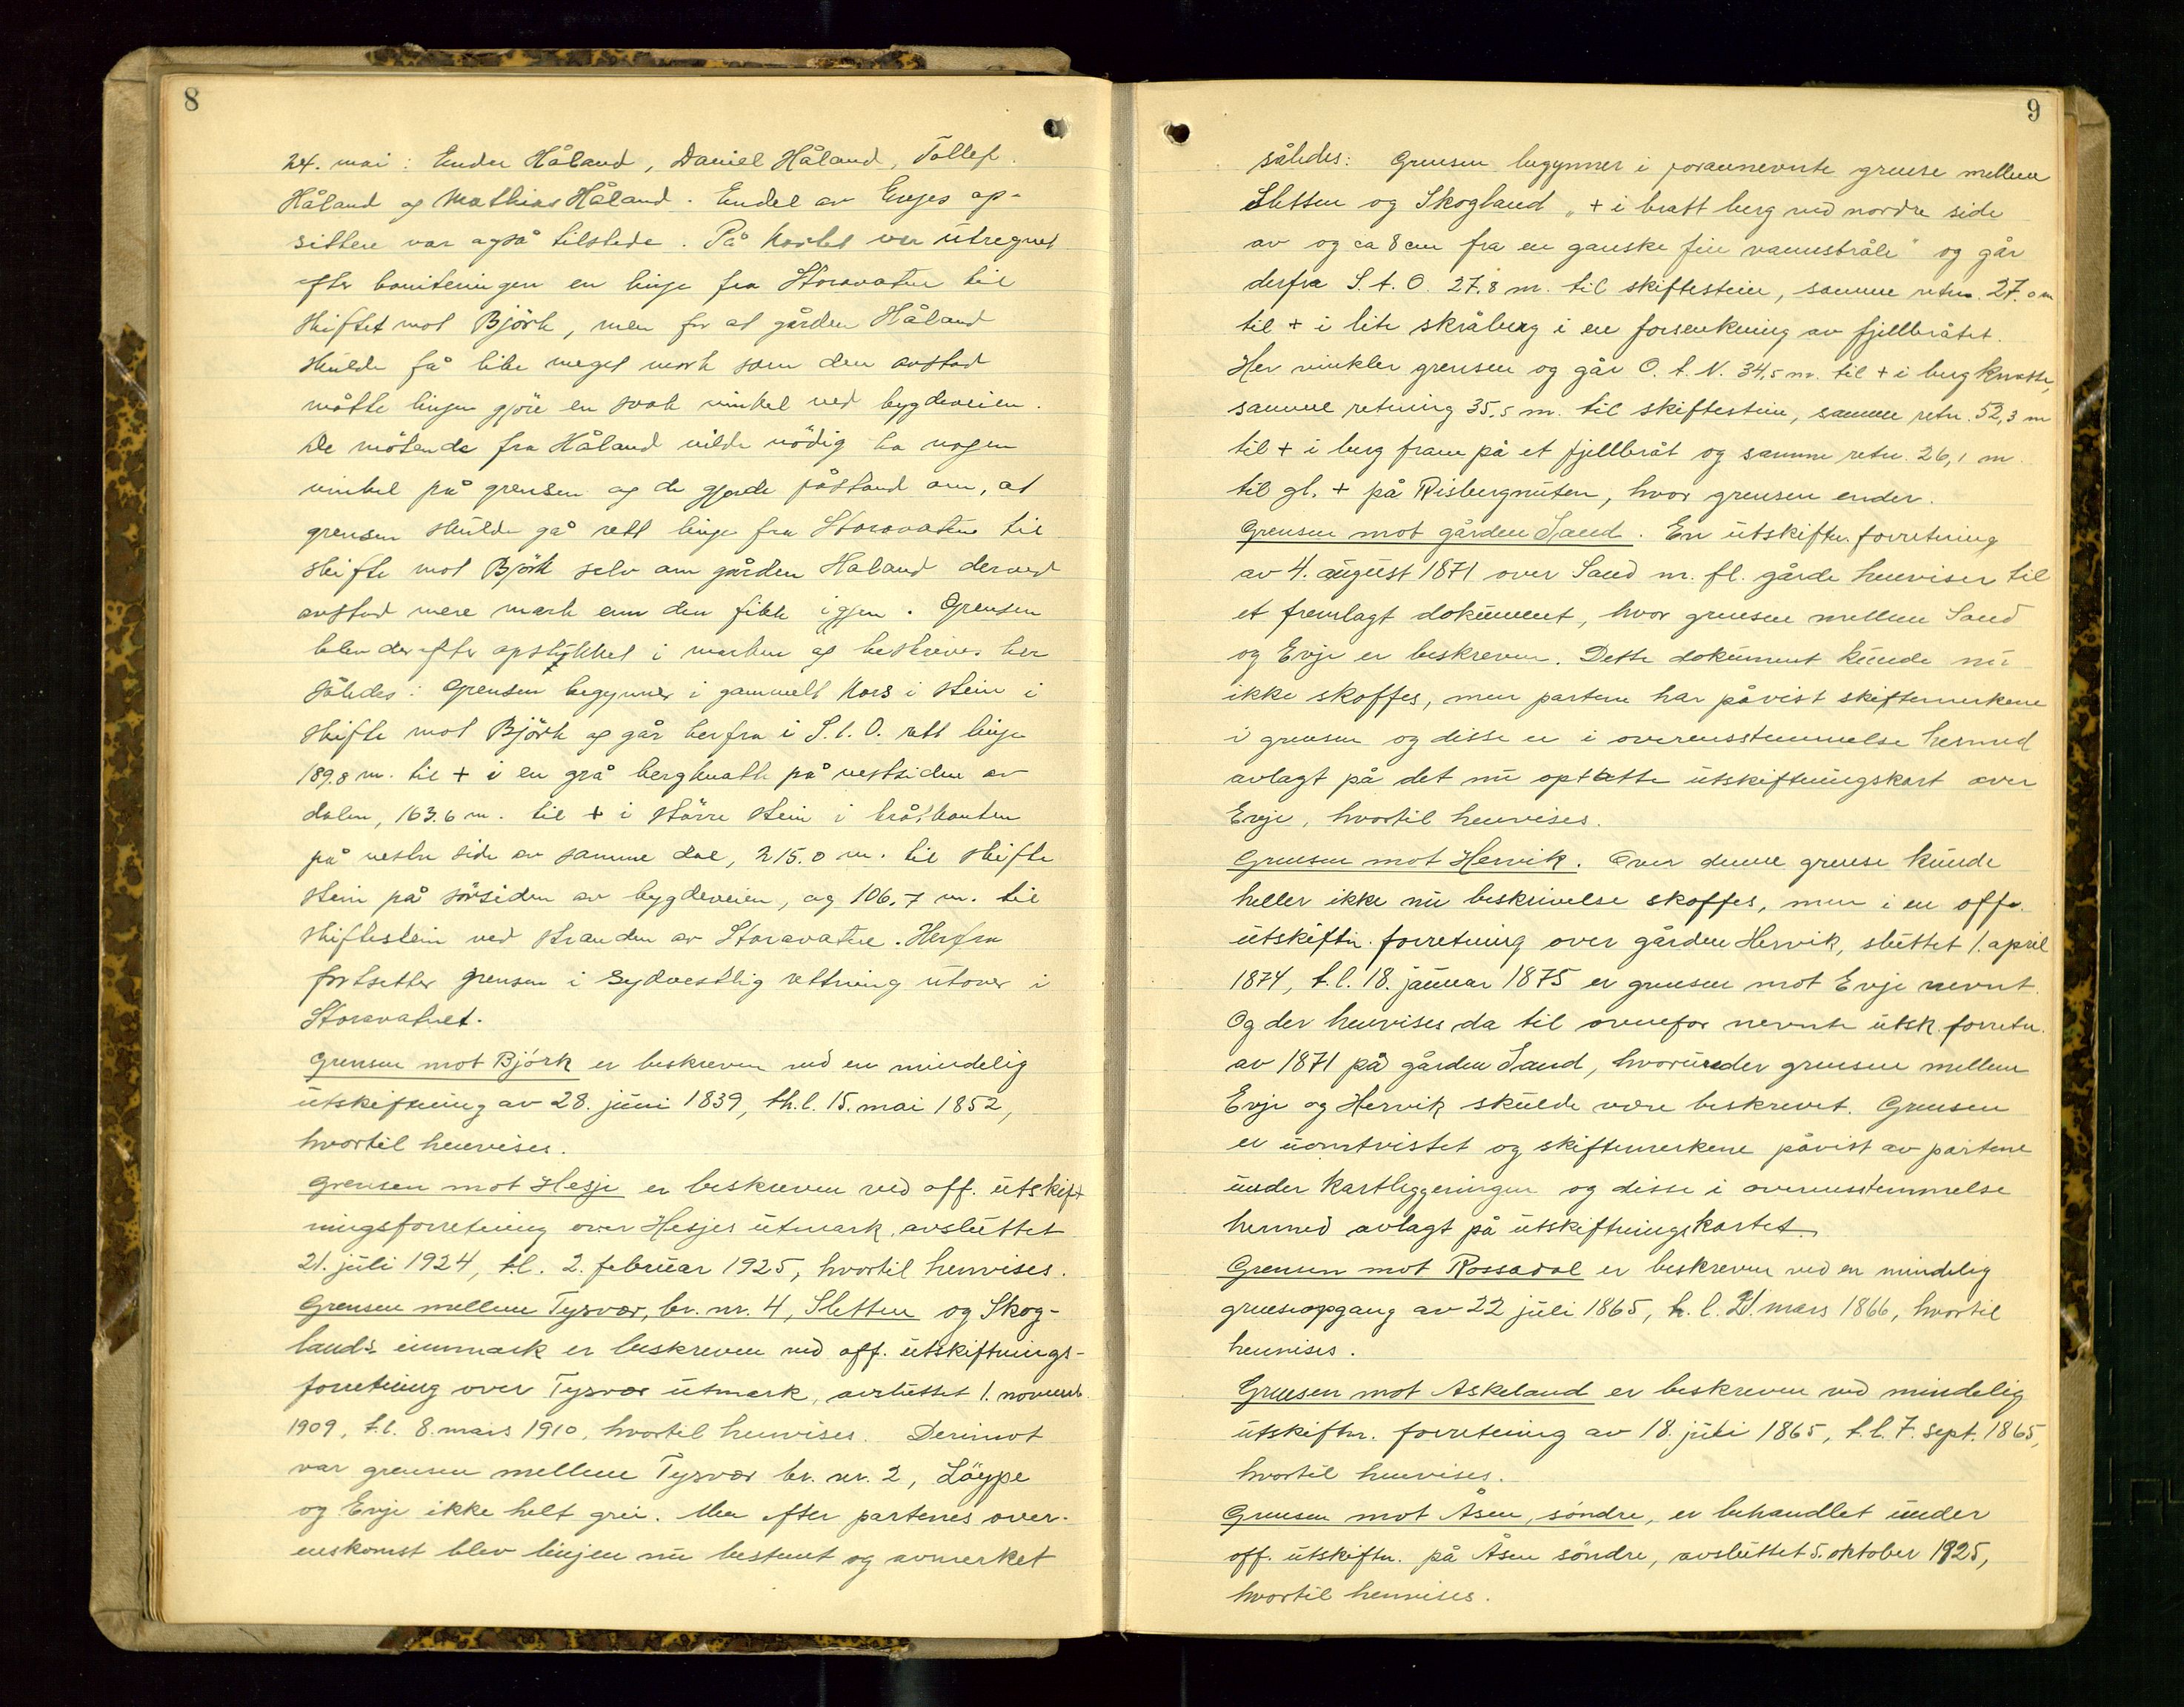 8
24. mai: Endre Håland, Daniel Håland, Tollef
Håland og Mathias Håland. Endel av Evjes op-
sittere var også tilstede. På kartet var utregnet
efter boniteringen en linje fra Storavatne til
skiftet mot Björk, men for at gården Håland
skulde få like meget mark som den avstod
måtte linjen gjöre en svak vinkel ved bygdeveien.
De mötende fra Håland vilde nödig ha nogen
vinkel på grensen og de gjorde påstand om, at
grensen skulde gå rett linje fra Storavatne til
skifte mot Björk selv om gården Håland derved
avstod mere mark enn den fikk igjen. Grensen
blev derefter opstykket i marken og beskrives her
således: Grensen begynner i gammelt kors i stein i
skifte mot Björk og går herfra i S.t.O. rett linje
189.8 m. til + i en grå bergknatt på vestsiden av
dalen, 163.6 m. til + i större stein i bråtkanten
på vestre side av samme dal, 215.0 m. til skifte
stein på sörsiden av bygdeveien, og 106.7 m. til
skiftestein ved stranden av Storavatne. Herfra
fortsetter grensen i sydvestlig retning utover i
Storavatnet.
Grensen mot Björk er beskreven ved en mindelig
utskiftning av 28. juni 1839, th.l. 15. mai 1852,
hvortil henvises.
Grensen mot Hesje er beskreven ved off. utskift
ningsforretning over Hesjes utmark, avsluttet
21. juli 1924, t.l. 2. februar 1925, hvortil henvises.
Grensen mellem Tysvær, br. nr. 4, Sletten og Skog-
lands innmark er beskreven ved off. utskiftnings-
forretning over Tysvær utmark, avsluttet 1. novemb.
1909, t.l. 8. mars 1910, hvortil henvises. Derimot
var grensen mellem Tysvær br. nr. 2, Löype
og Evje ikke helt grei. Men efter partenes over-
enskomst blev linjen nu bestemt og avmerket
9
således: Grensen begynner i forannevnte grense mellem
Sletten og Skogland „+ i bratt berg ved nordre side
av og ca 8 cm fra en ganske fin vannstråle" og går
derfra S.t.O. 27.8 m. til skiftestein, samme retn. 27.0 m
til + i lite skråberg i en forsenkning av fjellbråtet.
Her vinkler grensen og går O.t.N. 34,5 m. til + i bergknatte,
samme retning 35.5 m. til skiftestein, samme retn. 52,3 m
til + i berg fram på et fjellbråt og samme retn. 26,1 m
til gl. + på Risbergnuten, hvor grensen ender.
Grensen mot gården Sand. En utskiftn. forretning
av 4. august 1871 over Sand m. fl. gårde henviser til
et fremlagt dokument, hvor grensen mellem Sand
og Evje er beskreven. Dette dokument kunde nu
ikke skaffes, men partene har påvist skiftemerkene
i grensen og disse er i overensstemmelse hermed
avlagt på det nu optatte utskiftningskart over
Evje, hvortil henvises.
Grensen mot Hervik. Over denne grense kunde
heller ikke nu beskrivelse skaffes, men i en off.
utskiftn. forretning over gården Hervik, sluttet 1. april
1874, t.l. 18. januar 1875 er grensen mot Evje nevnt.
Og der henvises da til ovenfor nevnte utsk. forretn.
av 1871 på gården Sand, hvorunder grensen mellem
Evje og Hervik skulde være beskrevet. Grensen
er uomtvistet og skiftemerkene påvist av partene
under kartleggeringen og disse i overensstemmelse
hermed avlagt på utskiftningskartet.
Grensen mot Rossadal er beskreven ved en mindelig
grenseopgang av 22 juli 1865, t.l. 21. mars 1866, hvortil
henvises.
Grensen mot Askeland er beskreven ved mindelig
utskiftn. forretning av 18. juli 1865, t.l. 7. sept. 1865,
hvortil henvises.
Grensen mot Åsen, söndre, er behandlet under
off. utskiftn. på Åsen söndre, avsluttet 5. oktober 1925,
hvortil henvises.